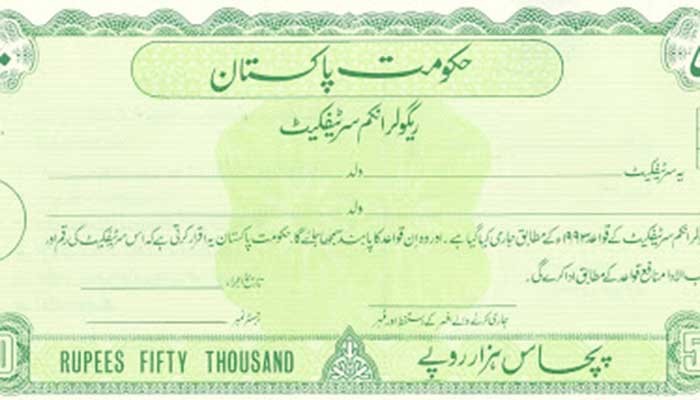 حکومت پاکستان
ریگولر انکم سرٹیفکیٹ
یہ سرٹیفکیٹ ولد
ولد
انکم سرٹیفکیٹ کے قواعد ۱۹۹۳ء کے مطابق جاری کیا گیا ہے۔ اور وہ ان قواعد کا پابند سمجھا جائے گا۔ حکومت پاکستان یہ اقرار کرتی ہے کہ اس سرٹیفکیٹ کی رقم اور
منافع قواعد کے مطابق ادا کرے گی۔
تاریخ اجراء
جاری کرنے والے افسر کے دستخط اور مہر رجسٹر نمبر
RUPEES FIFTY THOUSAND پچاس ہزار روپے